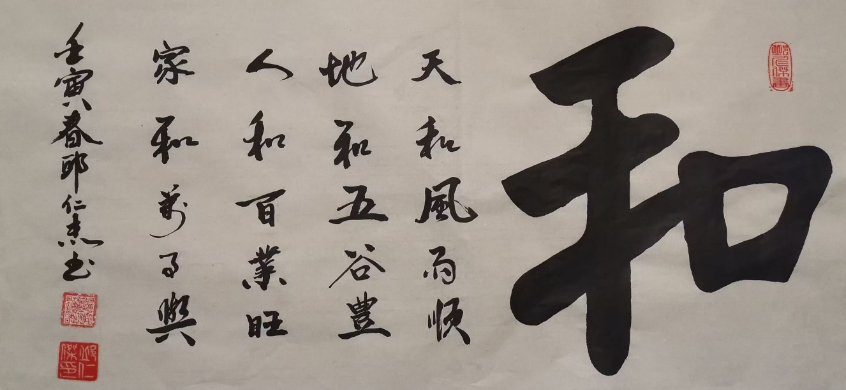 和
天和風雨順
地和五谷豐
人和百業旺
家和萬事興
壬寅春邱仁杰书
邱仁
傑印